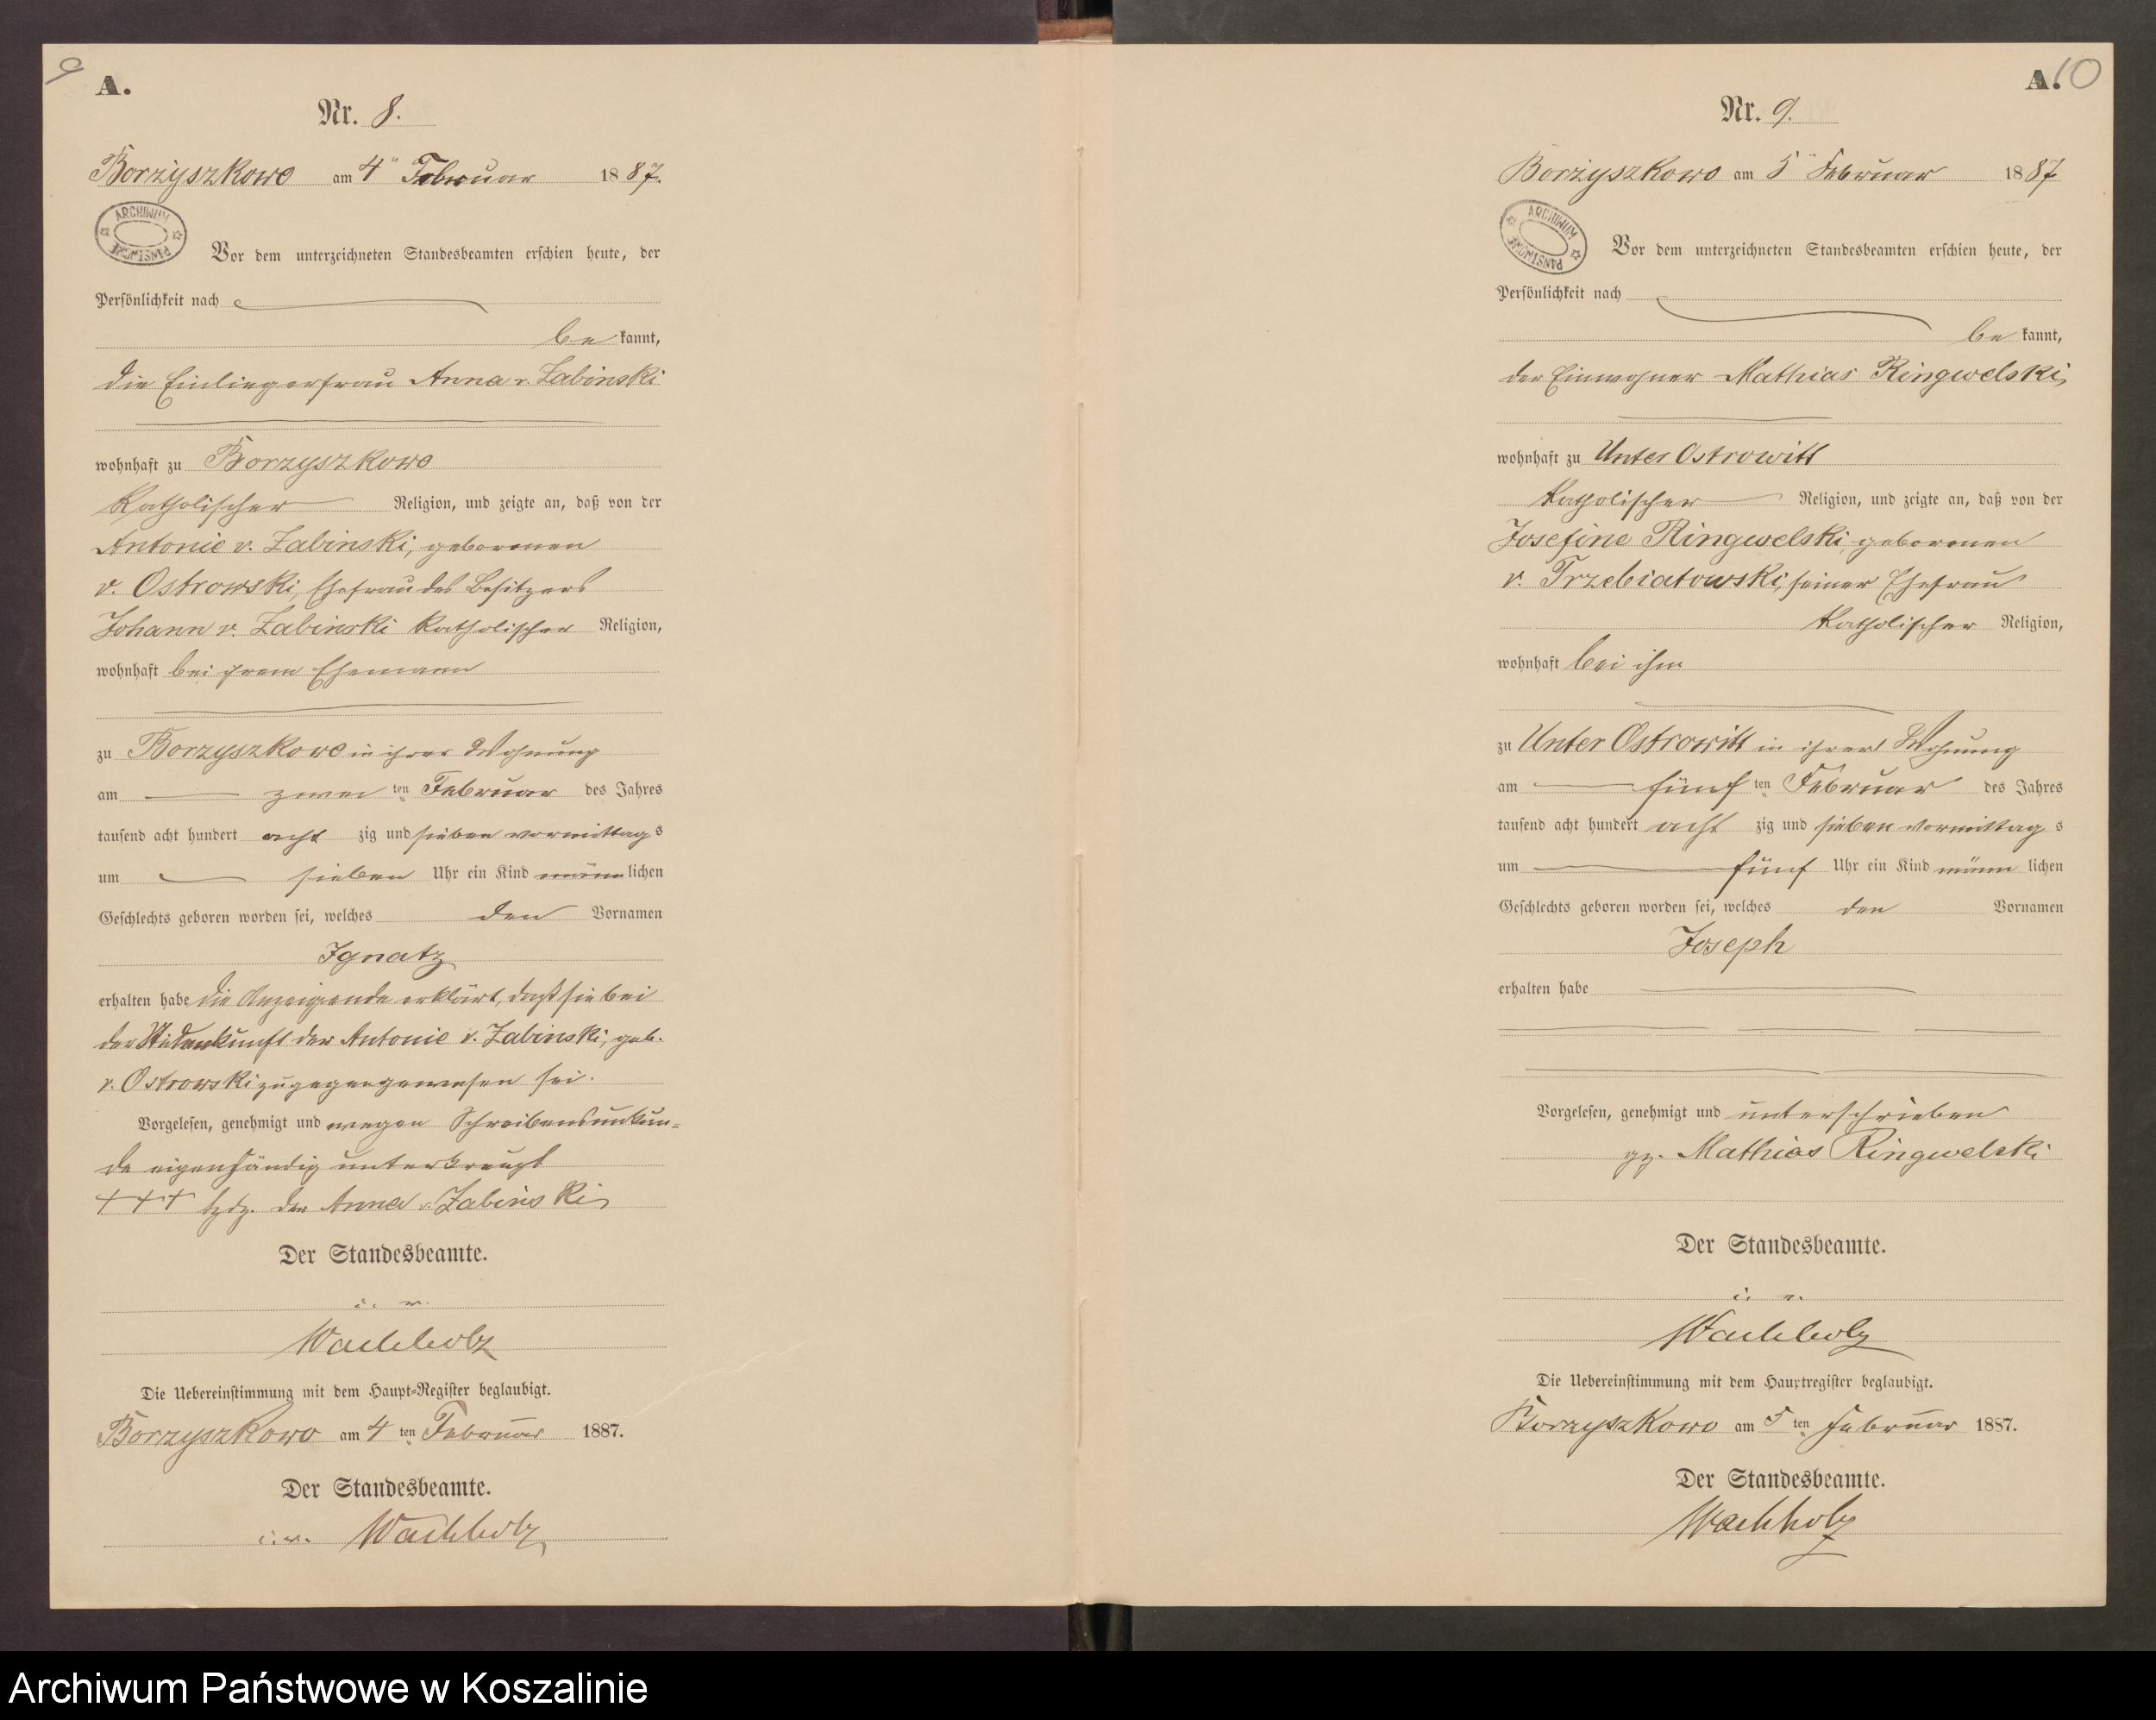 9
A.
Nr. 8.
Borzyszkowo am 4ten Februar 1887.
ARCHIWUM PAŃSTWOWE
Vor dem unterzeichneten Standesbeamten erschien heute, der
Persönlichkeit nach
be kannt,
die Einliegerfrau Anna v. Zabinski
wohnhaft zu Borzyszkowo
katholischer Religion, und zeigte an, daß von der
Antonie v. Zabinski, geborenen
v. Ostrowski, Ehefrau des Besitzers
Johann v. Zabinski katholischer Religion,
wohnhaft bei ihrem Ehemann
zu Borzyszkowo in ihrer Wohnung
am zweiten Februar des Jahres
tausend acht hundert acht zig und sieben vormittags
um sieben Uhr ein Kind männlichen
Geschlechts geboren worden sei, welches den Vornamen
Ignatz
erhalten habe die Anzeigende erklärt, daß sie bei
der Niederkunft der Antonie v. Zabinski, geb.
v. Ostrowski zugegen gewesen sei.
Vorgelesen, genehmigt und wegen Schreibensunkun-
de eigenhändig unterkreuzt
+++ der Anna v. Zabinski
Der Standesbeamte.
i. v.
Wachholz
Die Uebereinstimmung mit dem Haupt-Register beglaubigt.
Borzyszkowo am 4ten Februar 1887.
Der Standesbeamte.
i. v. Wachholz
A. 10
Nr. 9.
Borzyszkowo am 5ten Februar 1887
ARCHIWUM PAŃSTWOWE
Vor dem unterzeichneten Standesbeamten erschien heute, der
Persönlichkeit nach
be kannt,
der Einwohner Mathias Ringwelski
wohnhaft zu Unter Ostrowitt
katholischer Religion, und zeigte an, daß von der
Josefine Ringwelski, geborenen
v. Trzebiatowski, seiner Ehefrau
katholischer Religion,
wohnhaft bei ihm
zu Unter Ostrowitt in ihrer Wohnung
am fünften Februar des Jahres
tausend acht hundert acht zig und sieben vormittags
um fünf Uhr ein Kind männlichen
Geschlechts geboren worden sei, welches den Vornamen
Joseph
erhalten habe
Vorgelesen, genehmigt und unterschrieben
gz. Mathias Ringwelski
Der Standesbeamte.
i. v.
Wachholz
Die Uebereinstimmung mit dem Hauptregister beglaubigt.
Borzyszkowo am 5ten Februar 1887.
Der Standesbeamte.
Wachholz
Archiwum Państwowe w Koszalinie